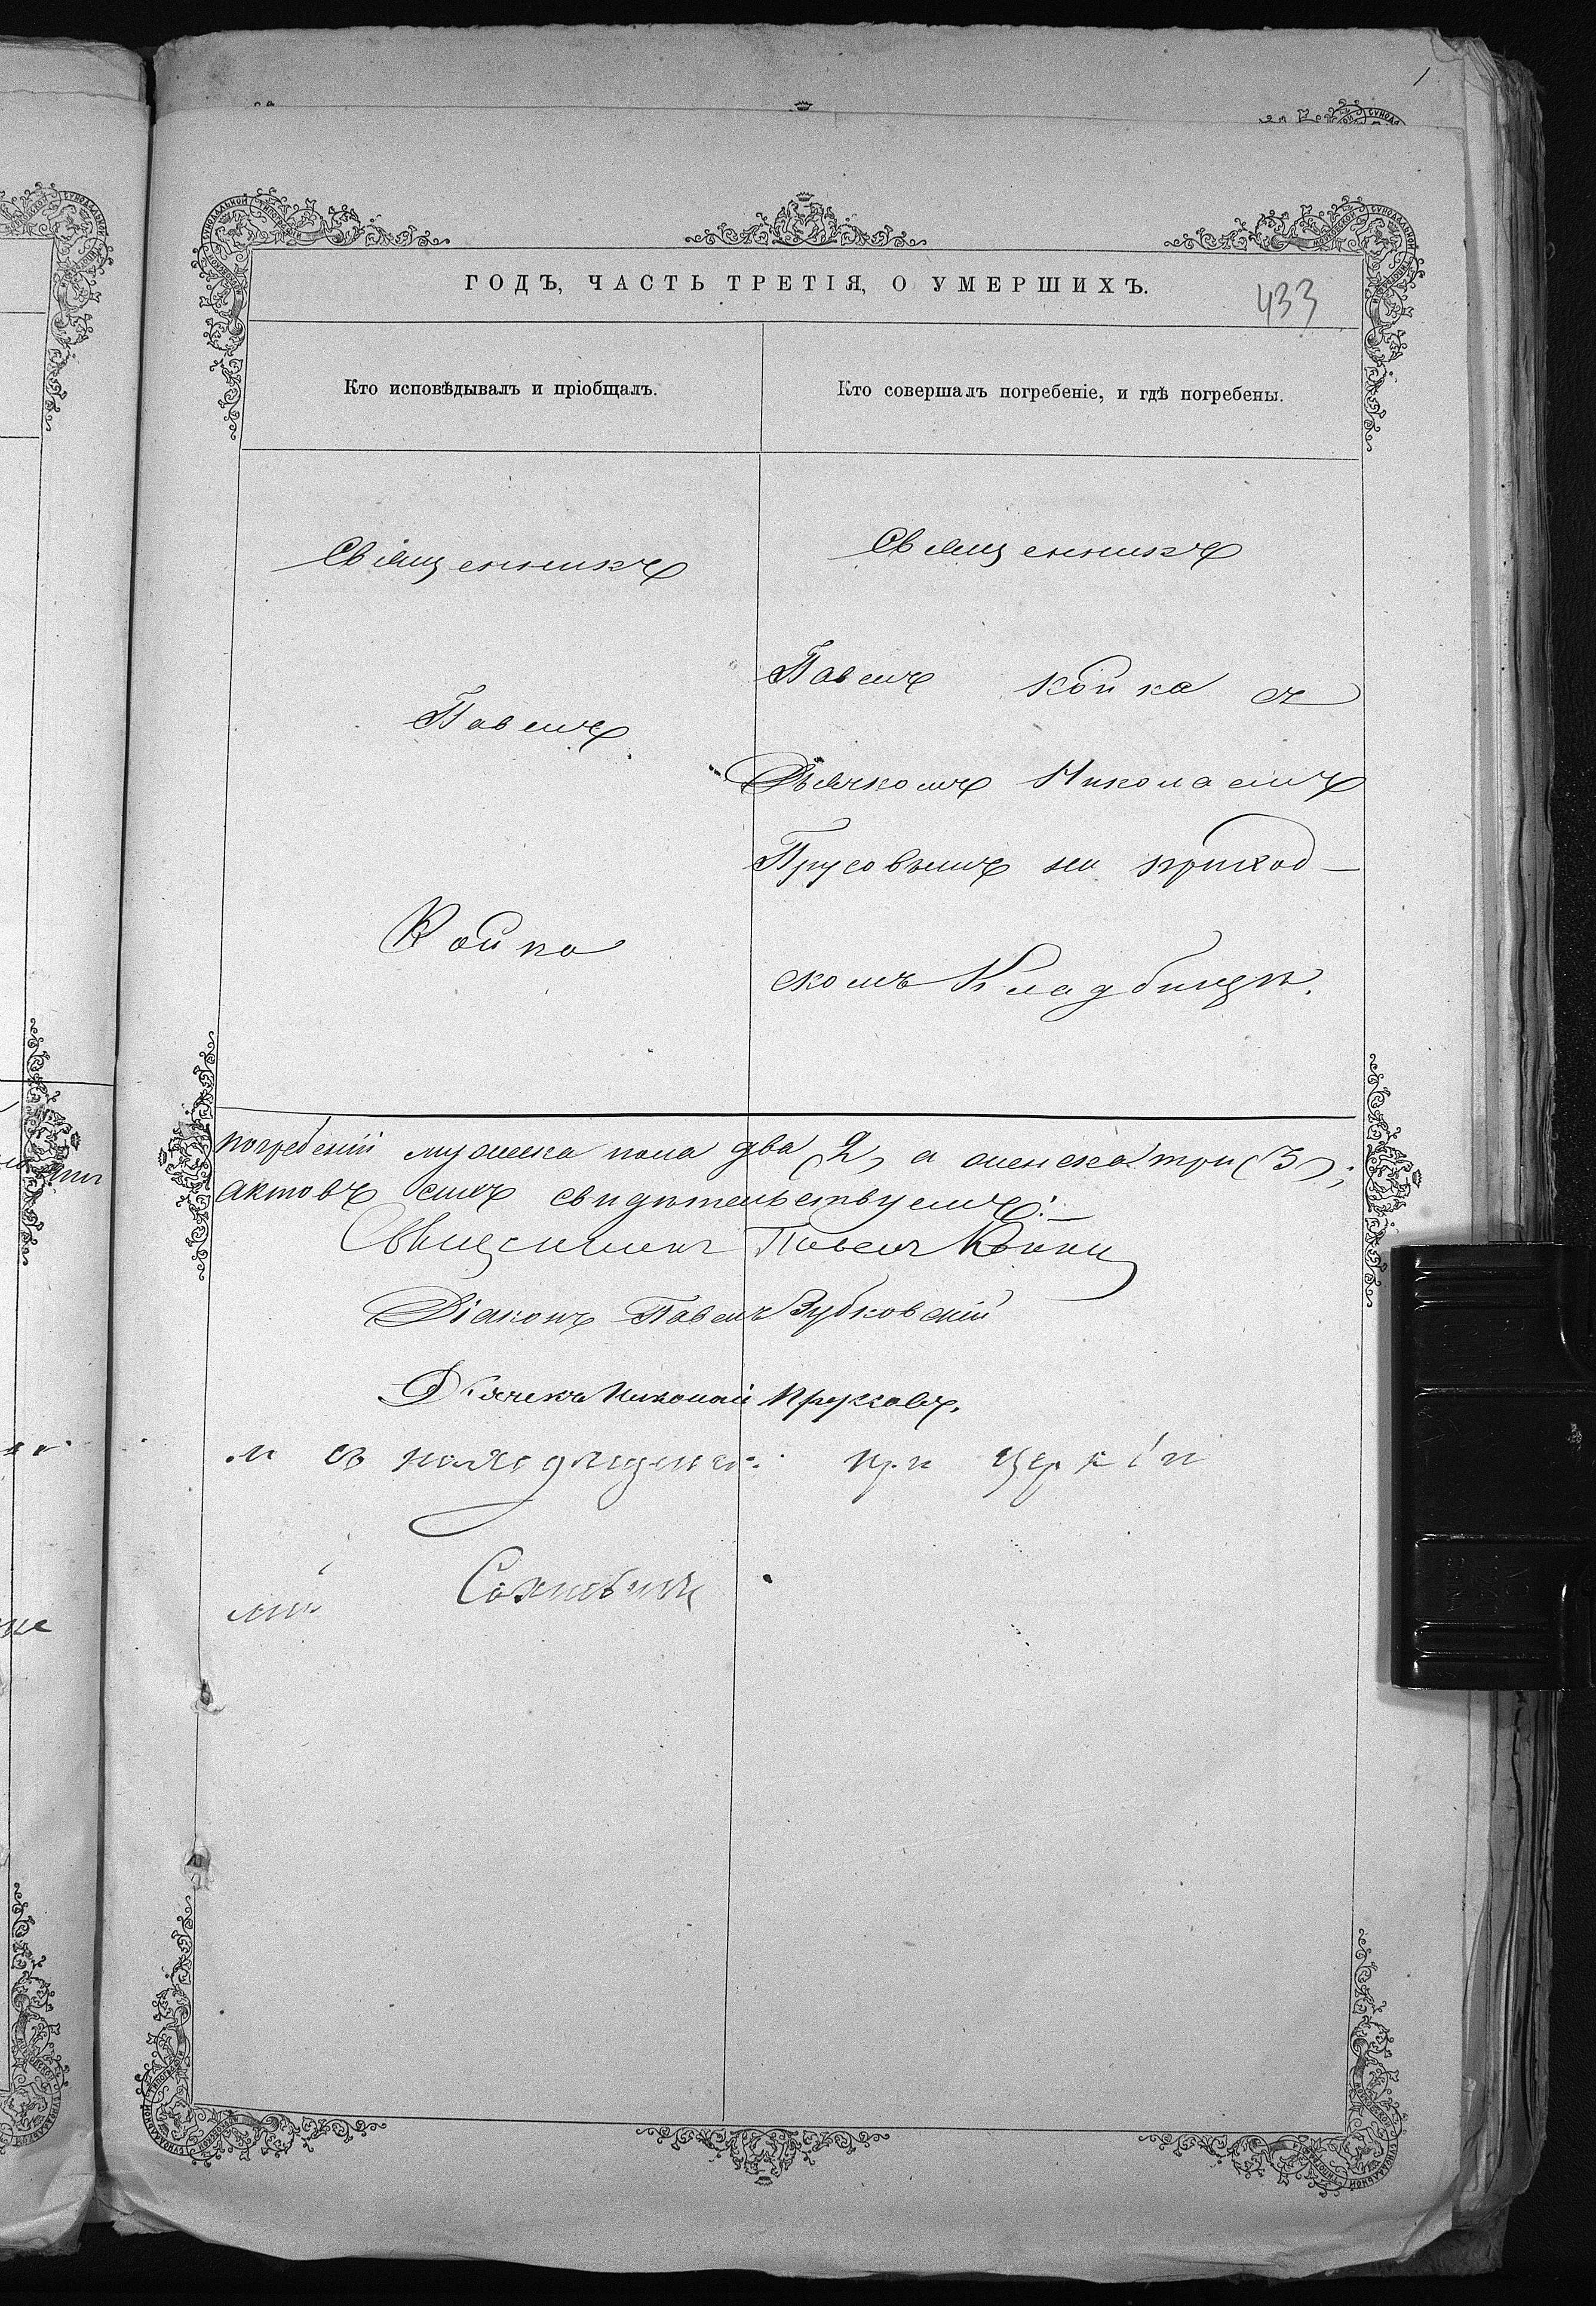 ГОДЪ, ЧАСТЬ ТРЕТІЯ, О УМЕРШИХЪ.
433
Кто исповѣдывалъ и пріобщалъ.
Кто совершалъ погребеніе, и гдѣ погребены.
Священникъ
Павелъ
Койко
Священникъ
Павелъ Койка съ
Дьячкомъ Николаемъ
на приход-
скомъ Кладбищѣ.
погребеній мужеска пола два (2) а женска три (3);
актовъ симъ свидѣтельствуемъ:
Священникъ Павелъ
Діаконъ Павелъ Зубковскій
Дьячекъ Николай
при церкви